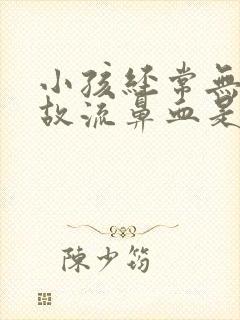 小孩经常無
故流鼻血是
陳少筠